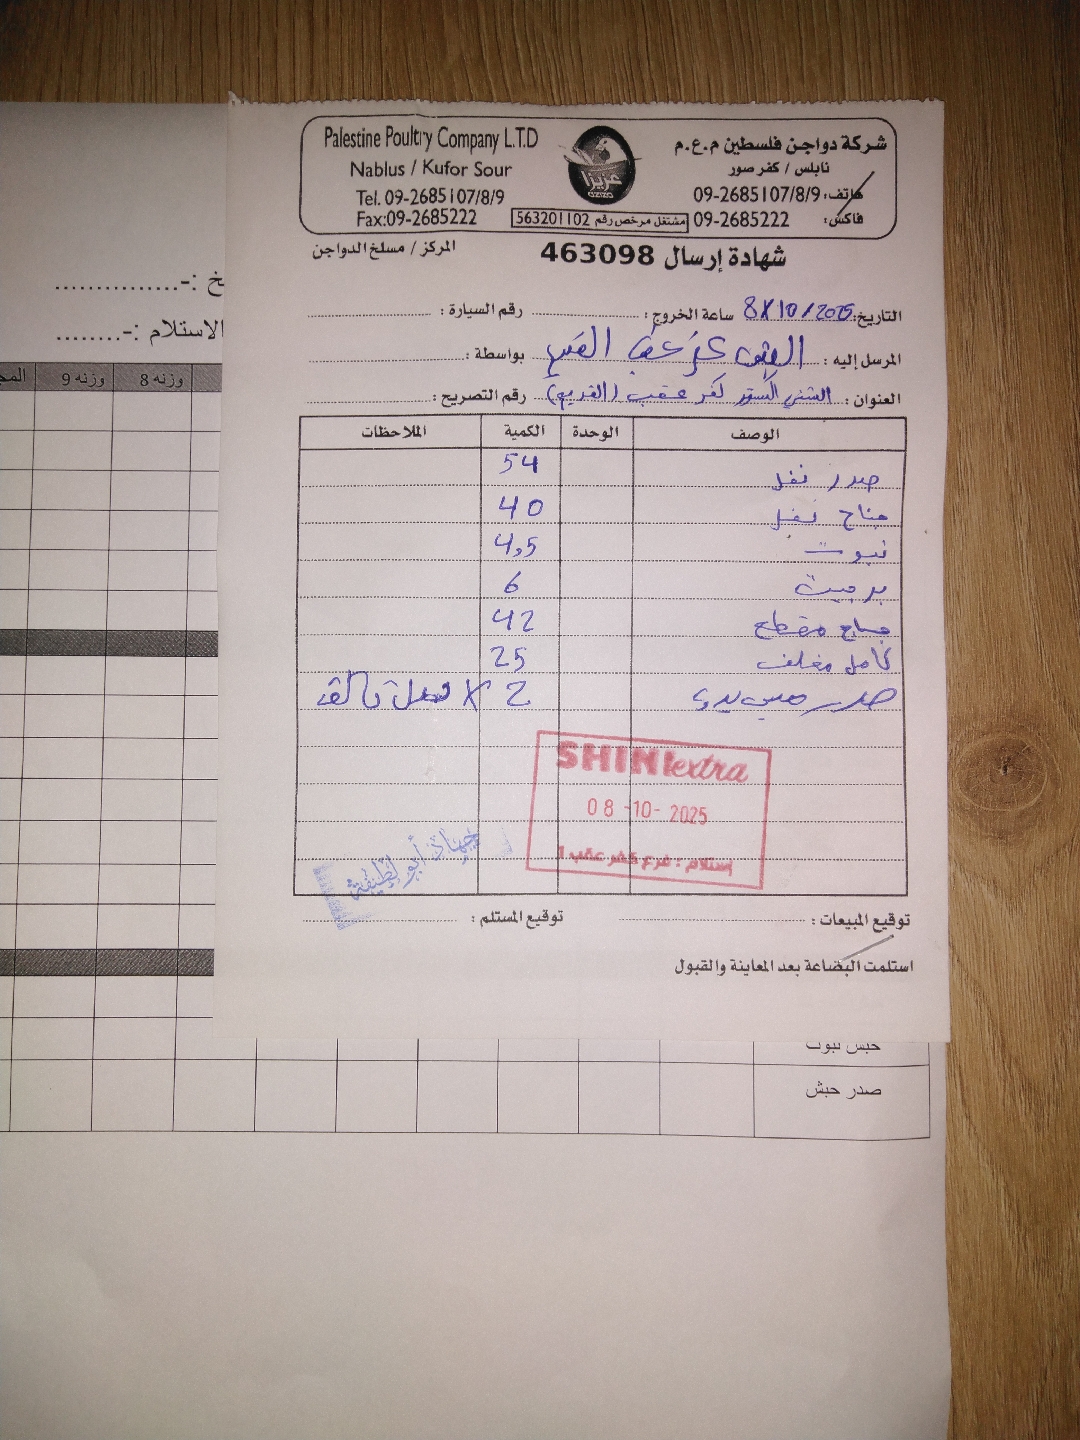 Palestine Poultry Company L.T.D
Nablus / Kufor Sour
Tel. 09-2685107/8/9
Fax:09-2685222
عزيزا
شركة دواجن فلسطين م.ع.م
نابلس / كفر صور
هاتف: 09-2685107/8/9
فاكس: 09-2685222
مشتغل مرخص رقم 563201102
شهادة إرسال 463098
المركز / مسلخ الدواجن
التاريخ: 8/10/2025 ساعة الخروج : رقم السيارة :
المرسل إليه : بواسطة :
العنوان : الشني اكسترا كفر عقب (القديم) رقم التصريح :
الوصف الوحدة الكمية الملاحظات
صدر نفل 54
جناح نفل 40
نبوت 4,5
6
مقطع 42
كامل مغلف 25
صدر 2
SHINI extra
08-10-2025
إستلام : فرع كفر عقب 1
جهاد أبو لطيفة
توقيع المبيعات : توقيع المستلم :
استلمت البضاعة بعد المعاينة والقبول
الاستلام :-
وزنه 8 وزنه 9
حبش نبوت
صدر حبش